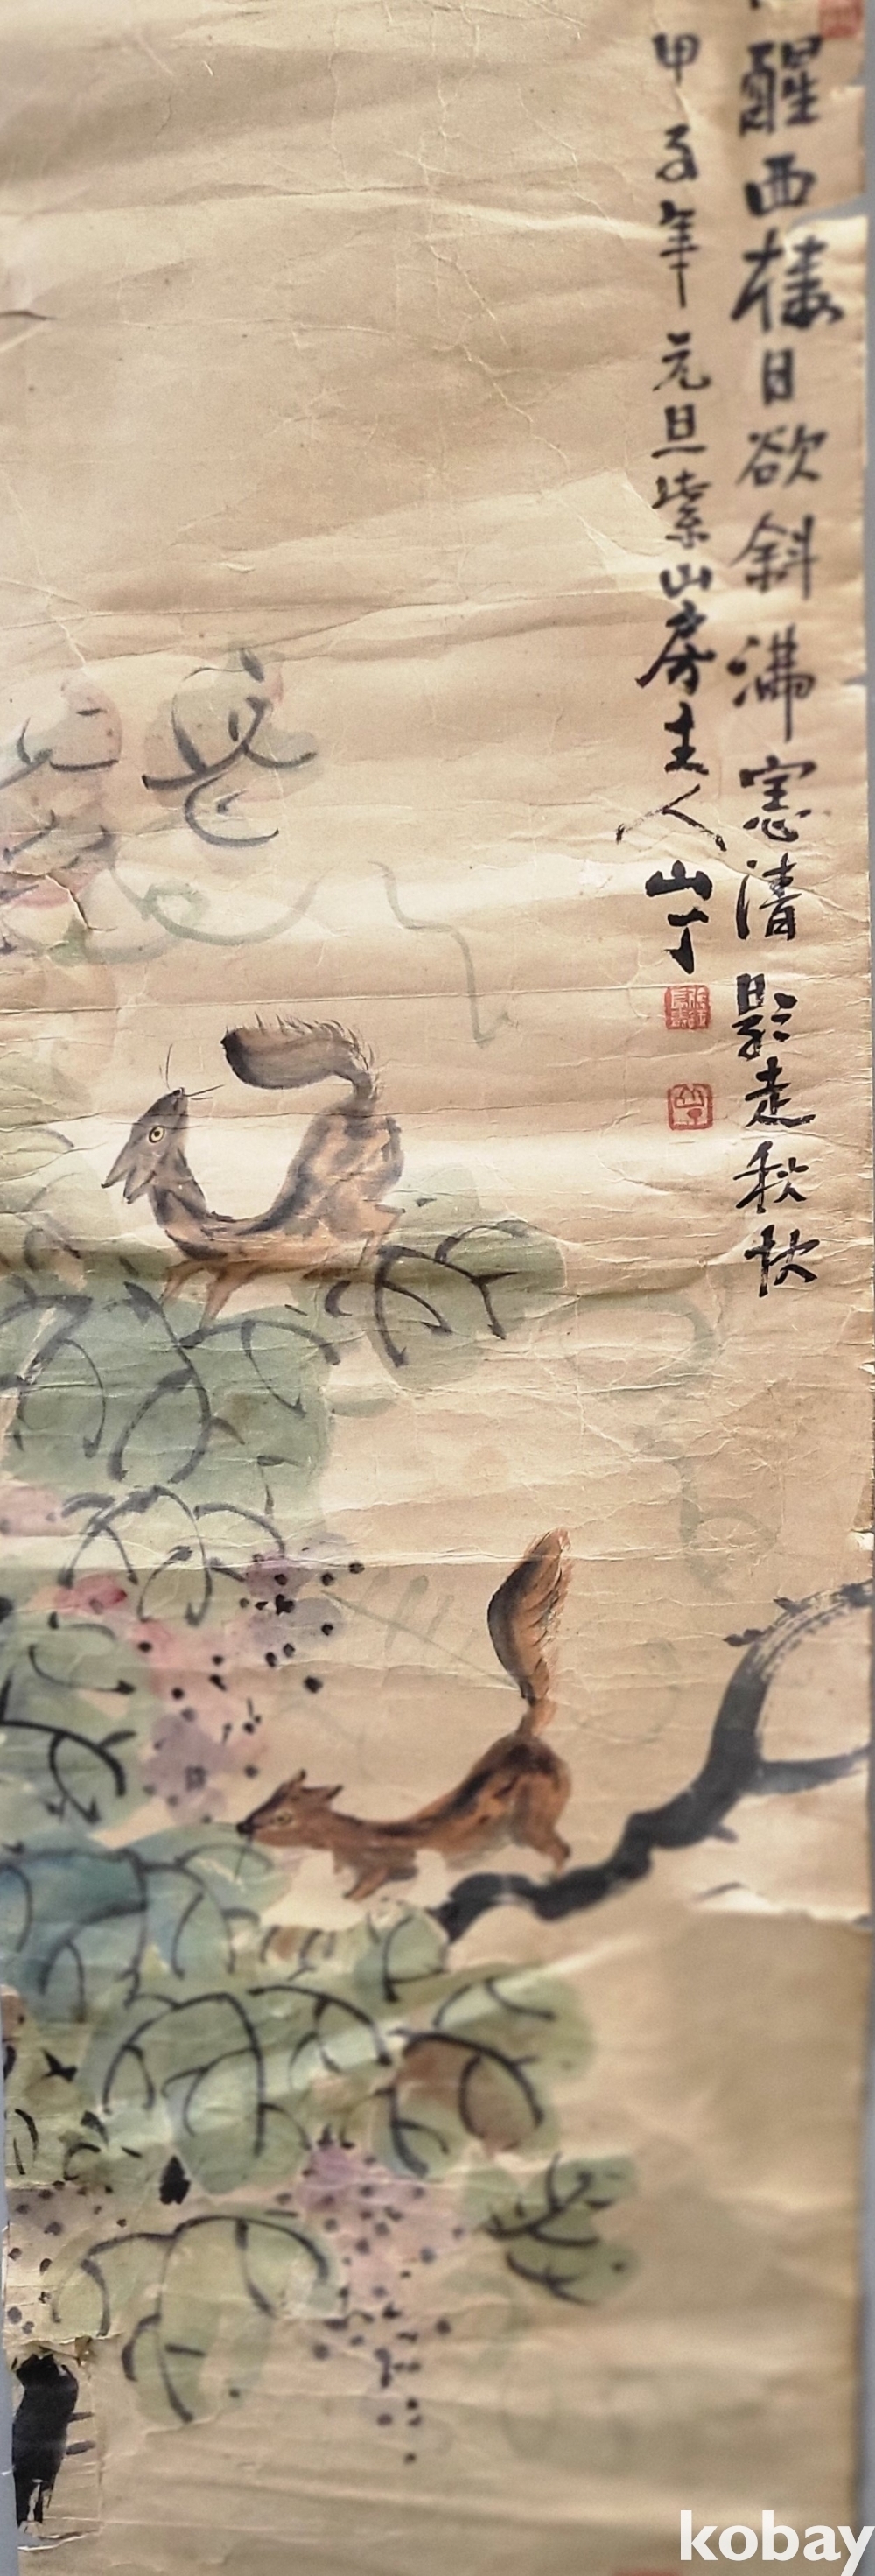 醒西樓日欲斜滿窻清影走秋
甲子年元旦紫山房主人山丁
kobay